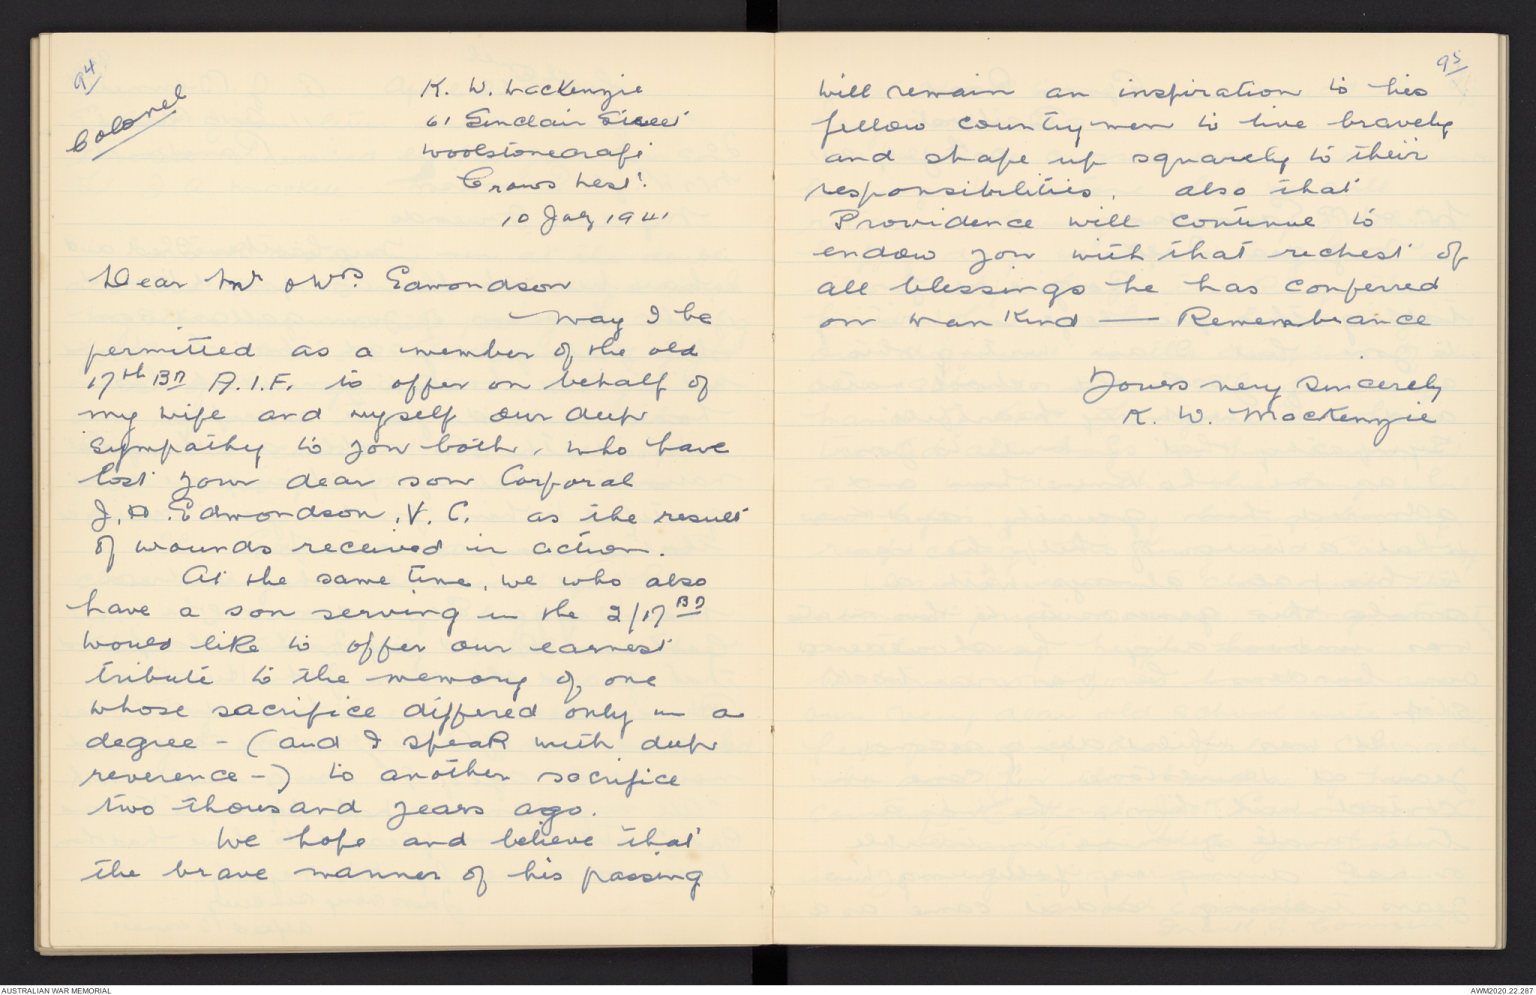 94
Colonel
K. W. Mackenzie
61 Sinclair Street
Woolstonecraft
Crows Nest.
10 July 1941
Dear Mr & Mrs. Edmondson
May I be
permitted as a member of the old
17th Bn A.I.F. to offer on behalf of
my wife and myself our deep
sympathy to you both, who have
lost your dear son Corporal
J. H. Edmondson, V. C. as the result
of wounds received in action.
At the same time, we who also
have a son serving in the 2/17 Bn
would like to offer our earnest
tribute to the memory of, one
whose sacrifice differed only in a
degree - (and I speak with deep
reverence -) to another sacrifice
two thousand years ago.
We hope and believe that
the brave manner of his passing
95
will remain an inspiration to his
fellow countrymen to live bravely
and shape up squarely to their
responsibilities. also that
Providence will continue to
endow you with that richest of
all blessings he has conferred
on mankind — Remembrance
Yours very sincerely
K. W. Mackenzie
AUSTRALIAN WAR MEMORIAL
AWM2020.22.287